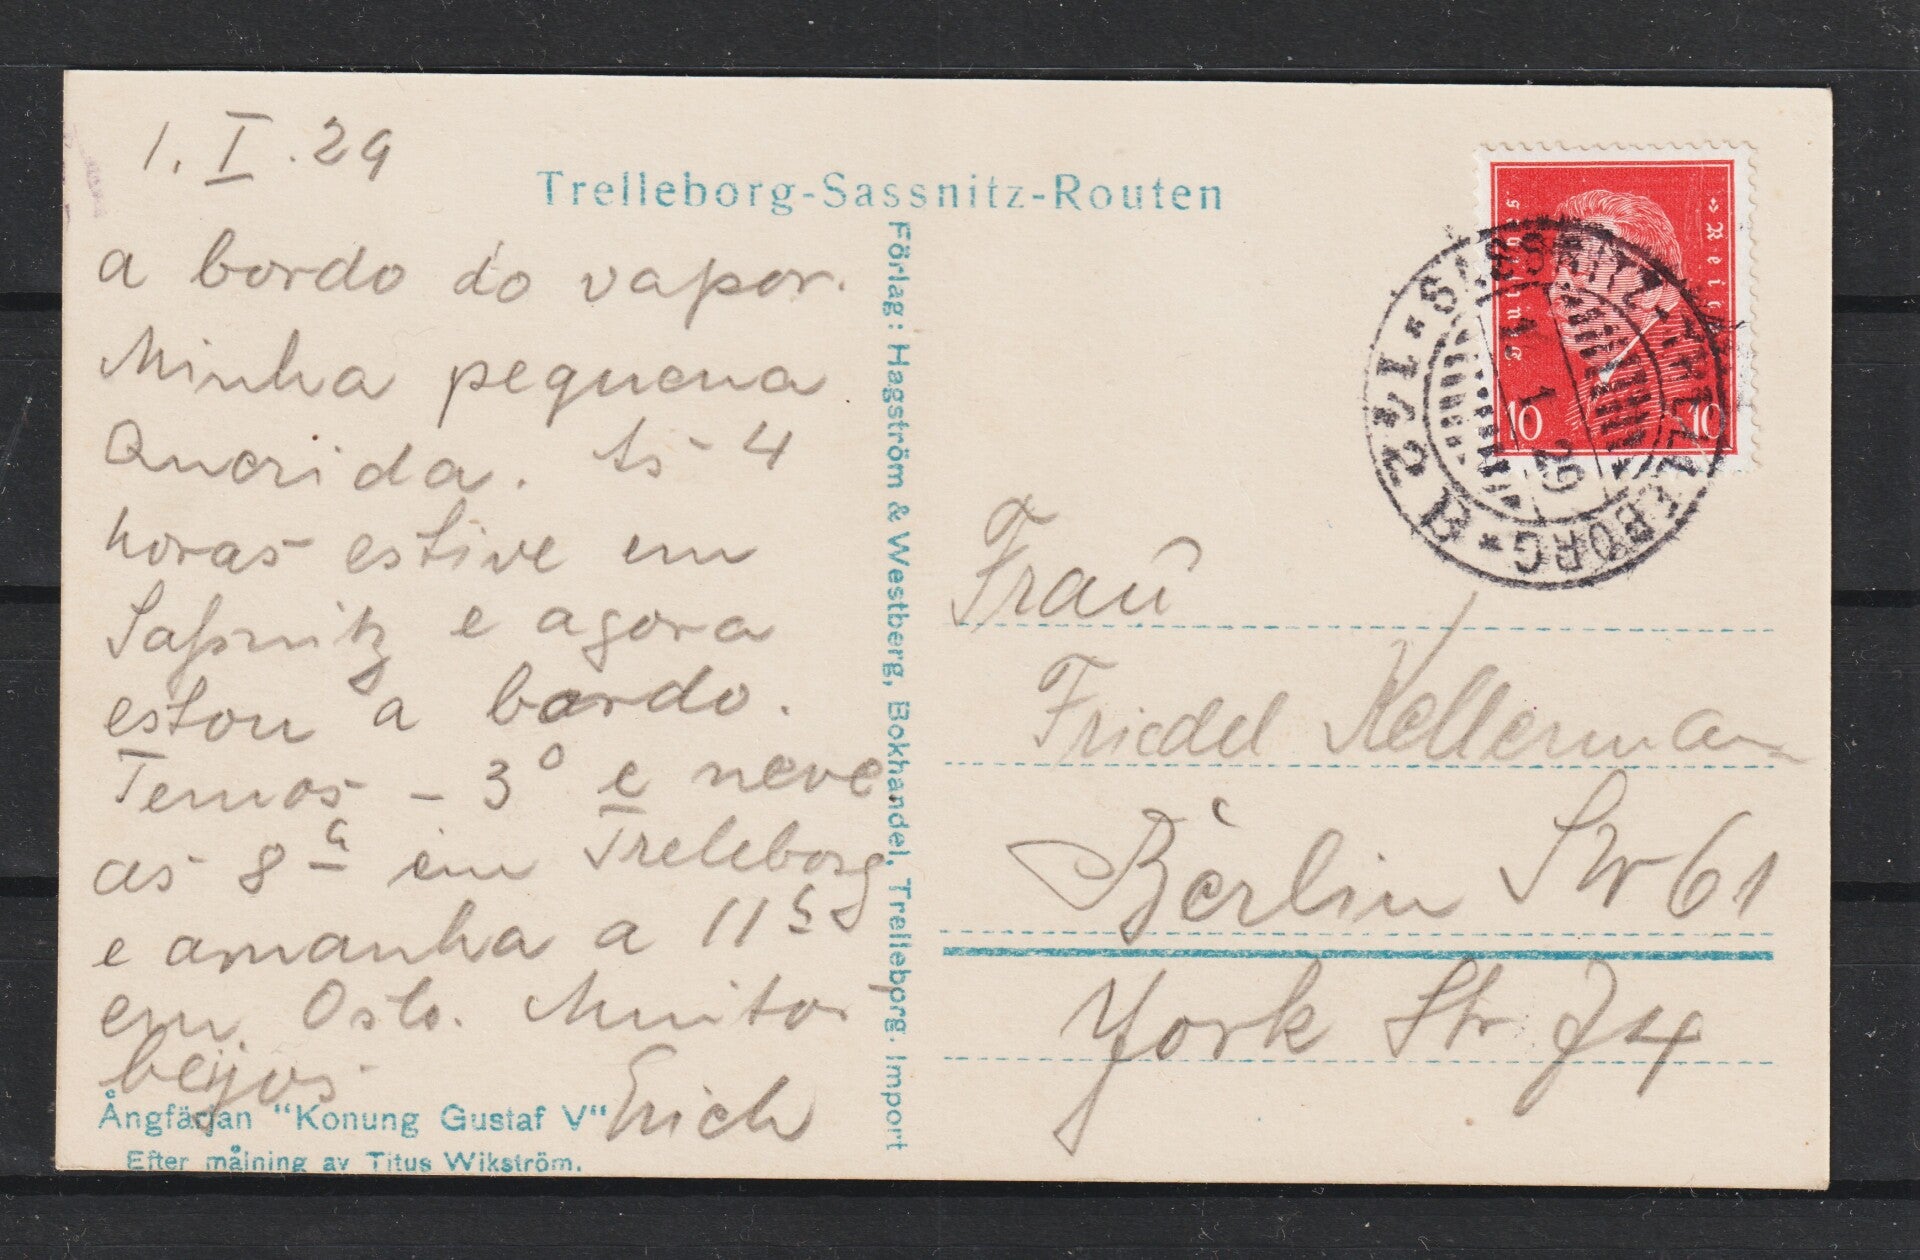 1. I. 29
a bordo do vapor.
Minha pequena
Querida. As 4
horas estive em
Saßnitz e agora
estou a bordo.
Temos - 3° e neve,
as 8 h em Treleborg
e amanha a 11 h
em Oslo. Muitos
beijos
Erich
Ångfärjan "Konung Gustaf V"
Efter målning av Titus Wikström.
Trelleborg-Sassnitz-Routen
Förlag: Hagström & Westberg, Bokhandel, Trelleborg. Import
Deutsches Reich
10 10
SASSNITZ-TRELLEBORG
1 1 29
Frau
Friedel Kellerman
Berlin SW 61
York Str 74